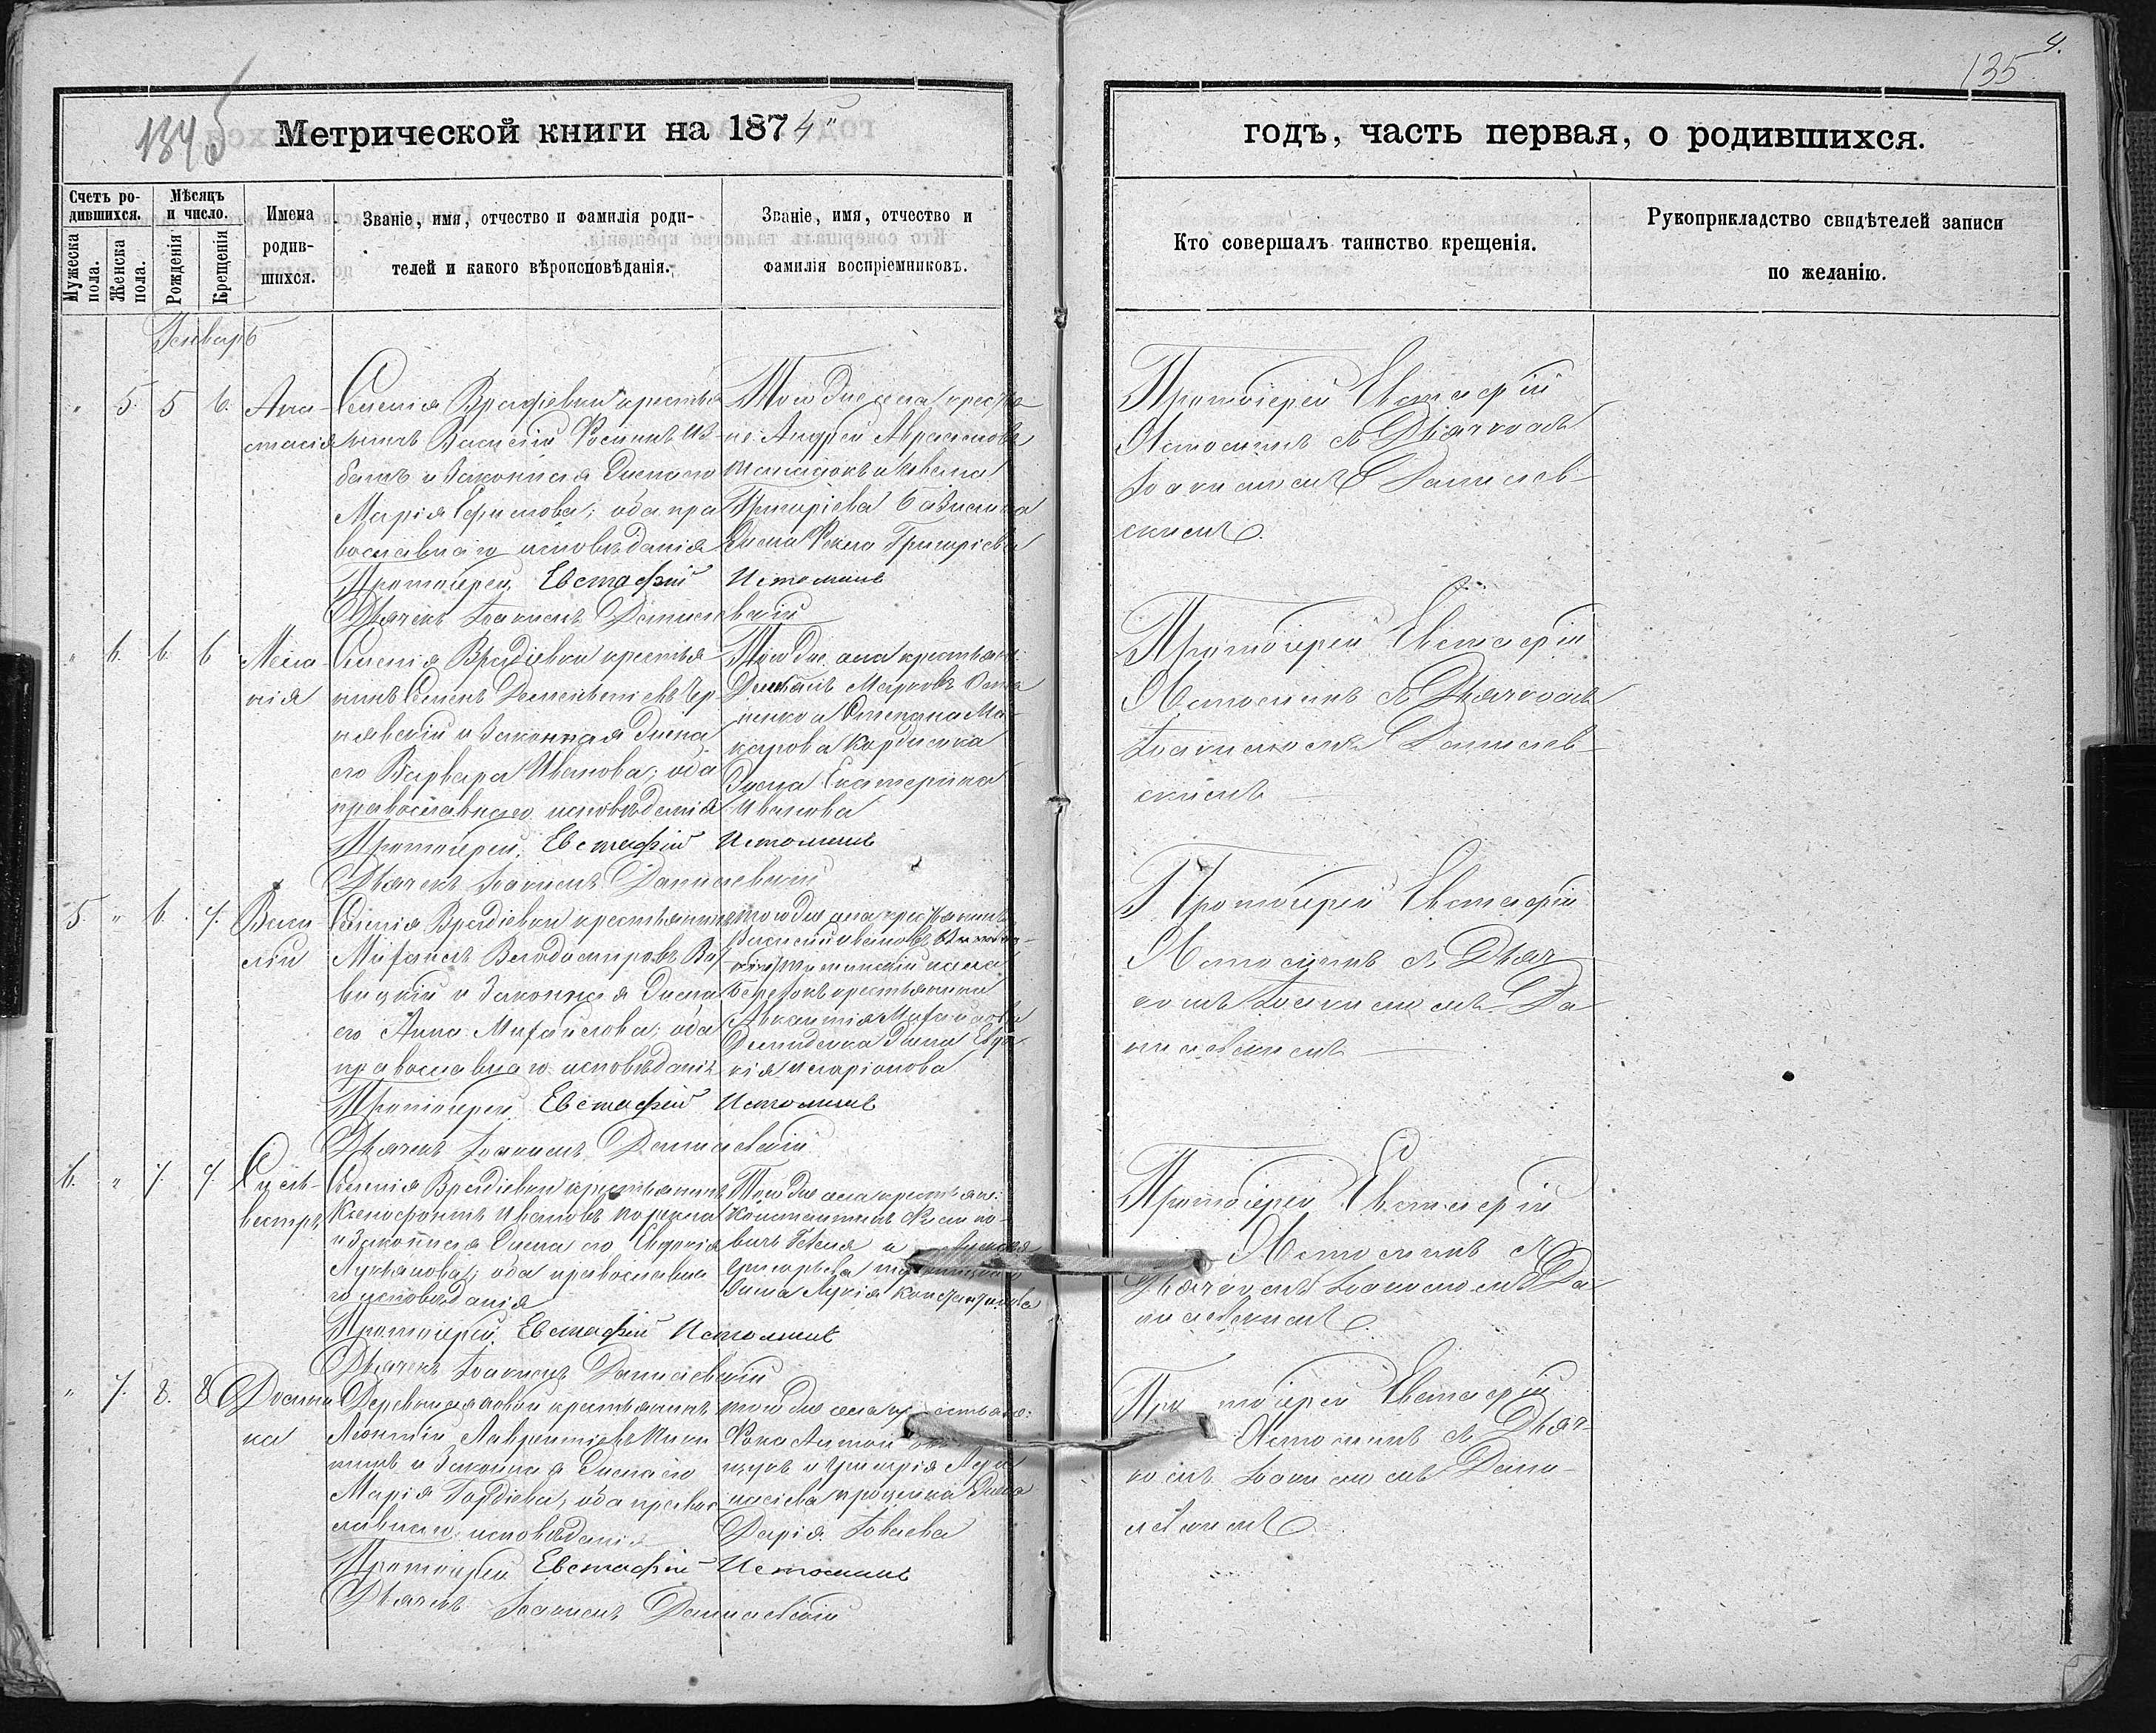 4.
135
1345
Метрической книги на 1874
годъ, часть первая, о родившихся.
Счетъ ро-
дившихся.
Мѣсяцъ
и число.
Мужеска
пола.
Женска
пола.
Рожденія
Крещенія
Имена
родив-
шихся.
Званіе, имя, отчество и фамилія роди-
телей и какого вѣроисповѣданія.
Званіе, имя, отчество и
фамилія воспріемниковъ.
Кто совершалъ таинство крещенія.
Рукоприкладство свидѣтелей записи
по желанію.
Январь
" 5. 5 6. Ана-
стасія
Селенія Врадіевки крестья
нинъ Василій
и законная жена его
Марія Ефимова; оба пра
вославнаго исповѣданія
Протоіерей Евстафій Истоминъ
Дьячекъ Іоакимъ Данилевскій
Того же села крестья
не: Андрей Абрамовъ
и Ивана
Григоріева
жена Фекла Григоріева
Протоіерей Евстафій
Истоминъ съ Дьячкомъ
Іоакимомъ Данилев-
скимъ
" 6. 6. 6 Мела-
нія
Селенія Врадіевки крестья-
нинъ Семенъ Дементіевъ Чер
нявскій и законная жена
его Варвара Иванова; оба
православнаго исповѣданія
Протоіерей Евстафій Истоминъ
Дьячекъ Іоакимъ Данилевскій
Того же села крестьяне:
Марковъ
и Степана Ма-
карова
жена Екатерина
Иванова
Протоіерей Евстафій
Истоминъ съ Дьячкомъ
Іоакимомъ Данилев-
скимъ
5. " 6. 7. Васи
лій
Селенія Врадіевки крестьянинъ
Михаилъ Володимировъ
и законная жена
его Анна Михайлова; оба
православнаго исповѣданія
Протоіерей Евстафій Истоминъ
Дьячекъ Іоакимъ Данилевскій
того же села крестьянинъ
Василій Ивановъ
села
Березокъ крестьянина
Михайлова
жена Евдо
кія Иларіонова
Протоіерей Евстафій
Истоминъ съ Дьяч
комъ Іоакимомъ Да
нилевскимъ
6. " 7. 7. Сыль-
вестръ
Селенія Врадіевки крестьянинъ
Ксенофонтъ Ивановъ
и законная жена его Евдокія
Лукьянова; оба православна
го исповѣданія
Протоіерей Евстафій Истоминъ
Дьячекъ Іоакимъ Данилевскій
Того же села крестьяне:
Константинъ
и
Григорьева
жена Лукія Константинова
Протоіерей Евстафій
Истоминъ съ
Дьячкомъ Іоакимомъ Да
нилевскимъ
" 7. 8. 8 Домни
ка
Деревни крестьянинъ
Леонтій Лаврентіевъ
и законная жена его
Марія Гордіева; оба правос
лавнаго исповѣданія
Протоіерей Евстафій Истоминъ
Дьячекъ Іоакимъ Данилевскій
того же села крестьяне:
Фока
и Григорія
жена
Дарія
Протоіерей Евстафій
Истоминъ съ Дьяч-
комъ Іоакимомъ Дани-
левскимъ